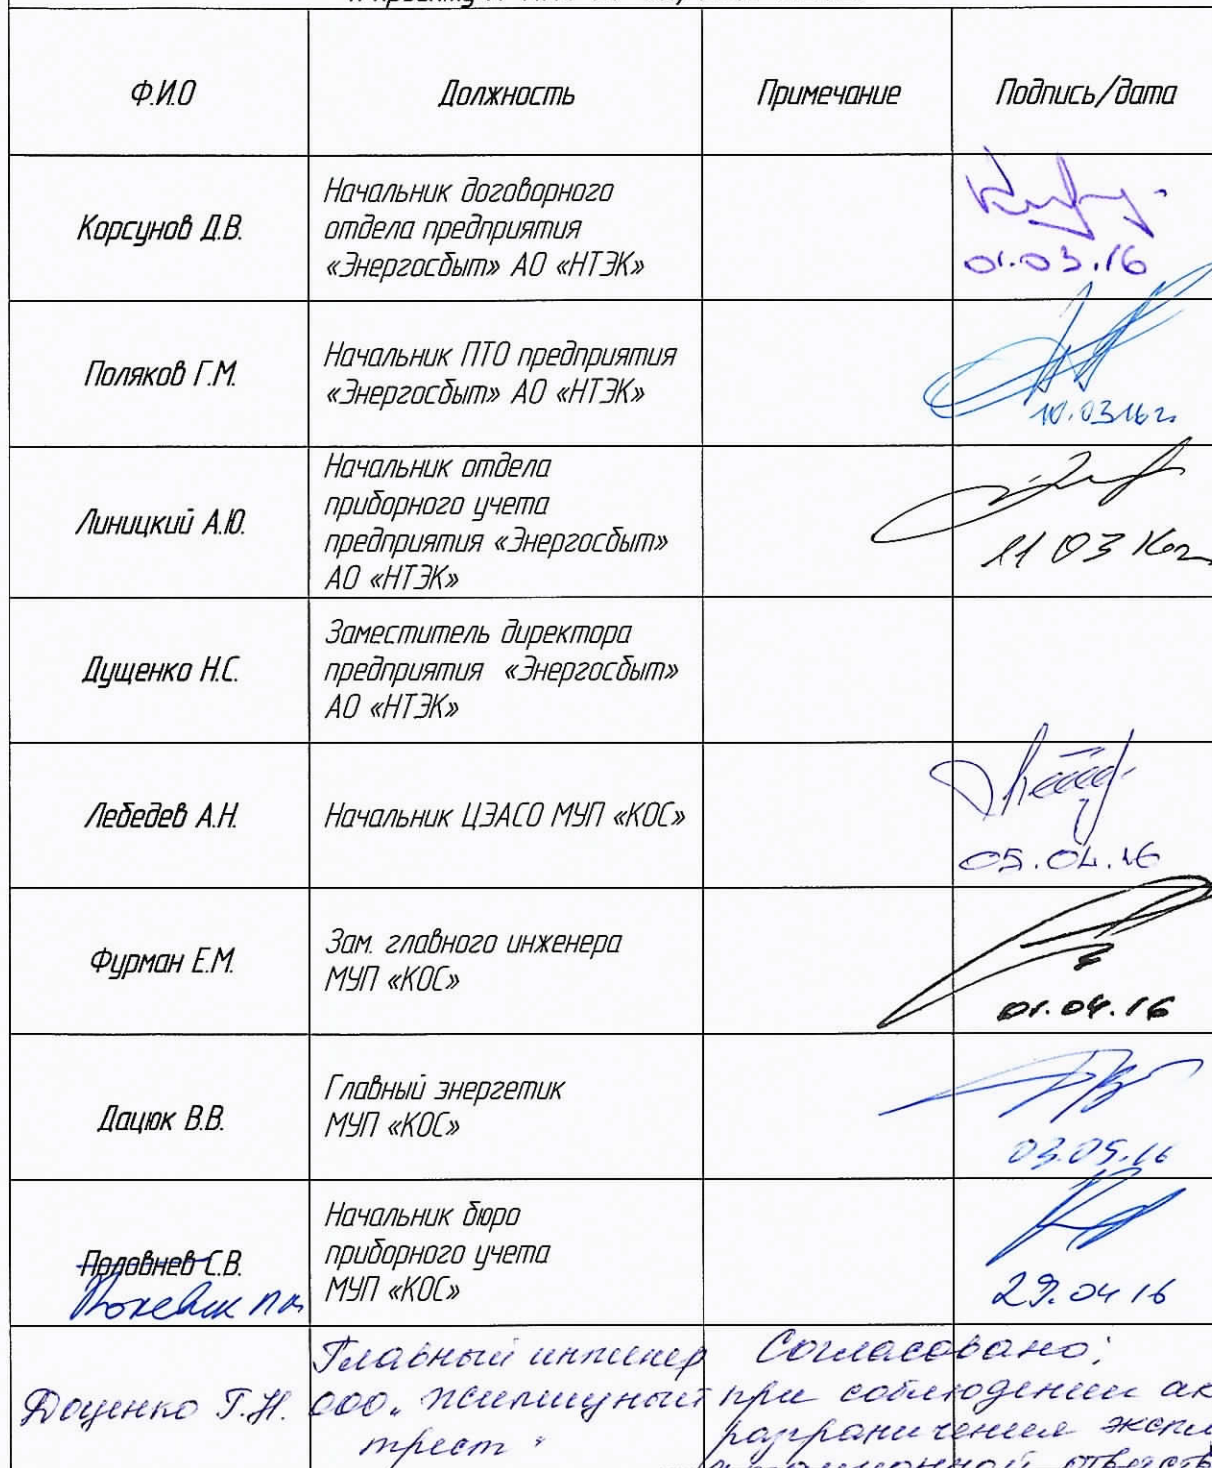 Ф.И.О Должность Примечание Подпись/дата
Корсунов Д.В.
Начальник договорного
отдела предприятия
«Энергосбыт» АО «НТЭК»
01.03.16
Поляков Г.М.
Начальник ПТО предприятия
«Энергосбыт» АО «НТЭК»
10.03.16г.
Линицкий А.Ю.
Начальник отдела
приборного учета
предприятия «Энергосбыт»
АО «НТЭК»
11 03 16г
Дущенко Н.С.
Заместитель директора
предприятия «Энергосбыт»
АО «НТЭК»
Лебедев А.Н.
Начальник ЦЭАСО МУП «КОС»
05.04.16
Фурман Е.М.
Зам. главного инженера
МУП «КОС»
01.04.16
Дацюк В.В.
Главный энергетик
МУП «КОС»
03.05.16
Половнев С.В.
Начальник бюро
приборного учета
МУП «КОС»
29.04 16
Доценко Г.Н.
Главный инженер
ООО „Жилищный
трест"
Согласовано:
при соблюдении ак
разграничения эксплу
ответств